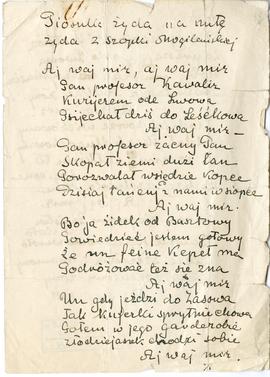 Piosnka żyda na nutę
żyda z Szopki Mogilańskiej
Aj waj mir, aj waj mir
Pan profesor Kawalir
Kuryjerem ode Lwowa
Psijechał dziś do Leśkowa
Aj waj mir —
Pan profesor zacny Pan
Skopał ziemi duzi łan
Porozwalał wsiędzie Kopce
Dzisiaj tańcuj z nami w siopce
Aj waj mir.
Bo ja żidek od Basztowy
Powiedzieć jestem gotowy
Że un feine Kepet ma
Podróżować też się zna
Aj waj mir
Un gdy jeździ do Zasowa
Tak Kuferki sprytnie chowa
Potem w jego garderobie
złodziejaszek chodzi sobie
Aj waj mir.